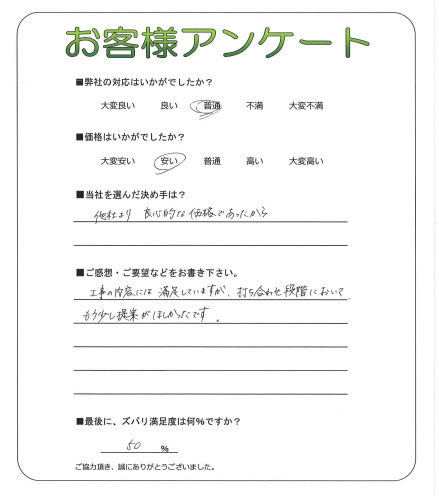 お客様アンケート
■弊社の対応はいかがでしたか？
大変良い 良い 普通 不満 大変不満
■価格はいかがでしたか？
大変安い 安い 普通 高い 大変高い
■当社を選んだ決め手は？
他社より 良心的な価格であったから
■ご感想・ご要望などをお書き下さい。
工事の内容には満足していますが、打ち合わせ段階において、
もう少し提案がほしかったです。
■最後に、ズバリ満足度は何％ですか？
50 ％
ご協力頂き、誠にありがとうございました。